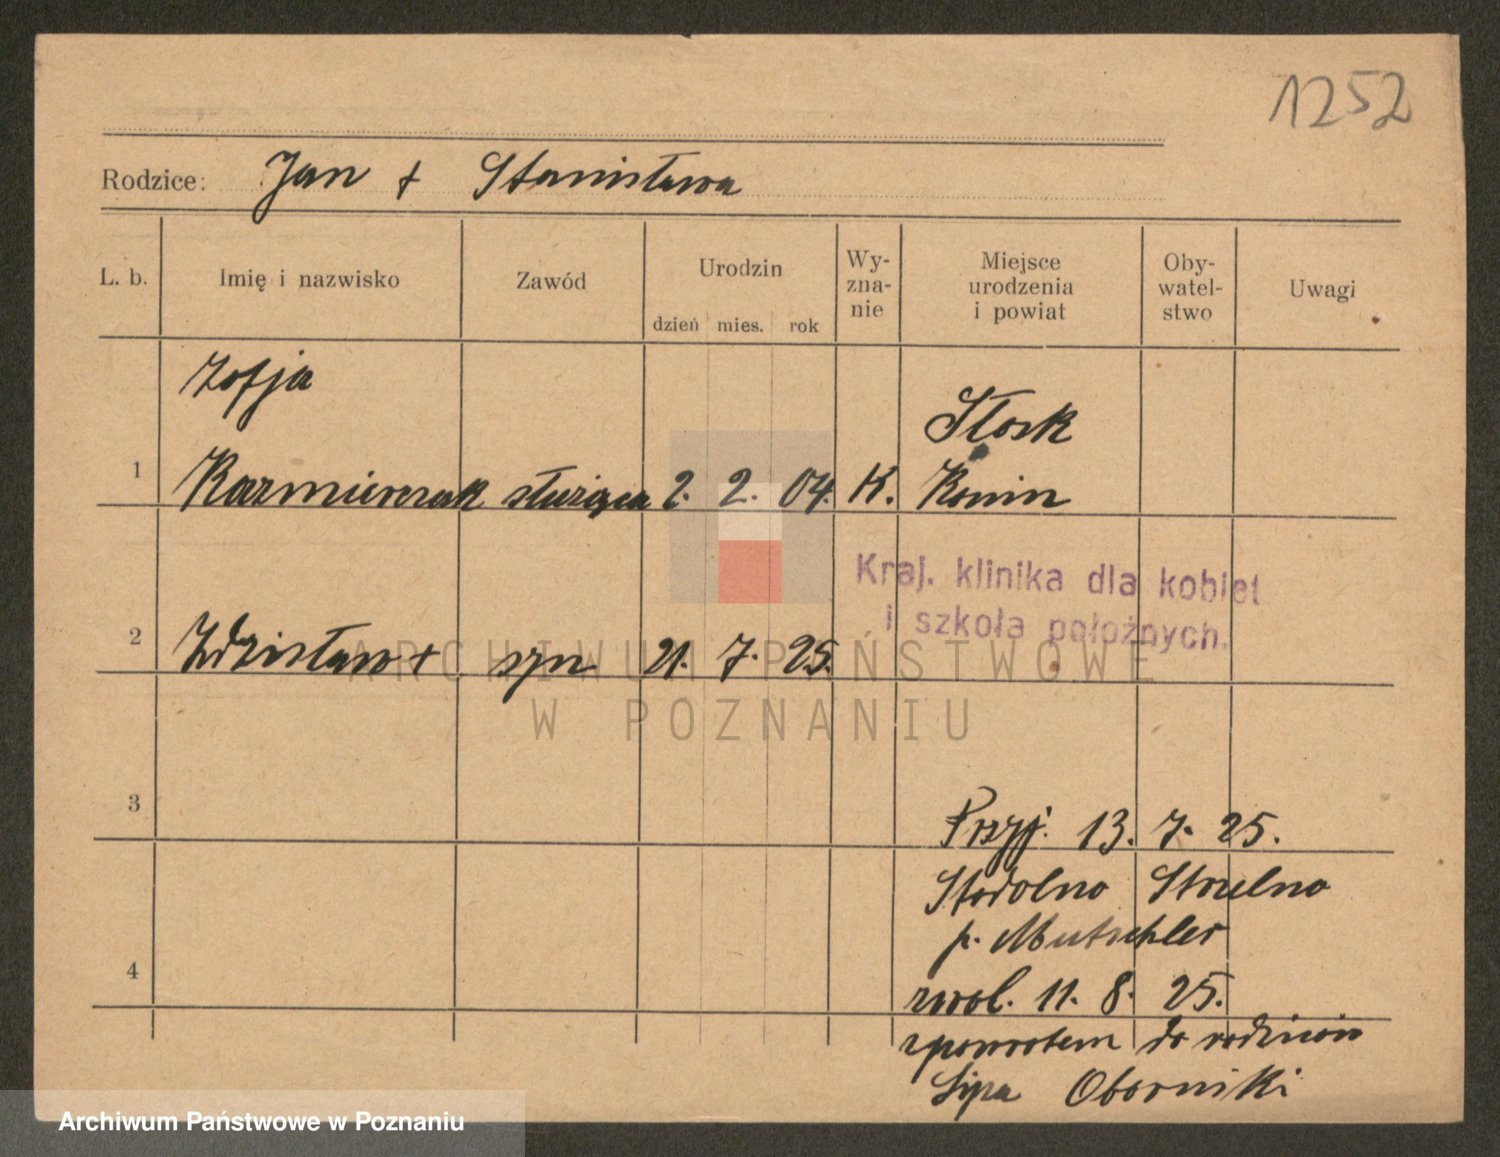 1252
Rodzice: Jan + Stanisława
L. b. Imię i nazwisko Zawód Urodzin dzień mies. rok Wy-zna-nie Miejsce urodzenia i powiat Oby-watel-stwo Uwagi
Zofja
Słosk
1 Kazmierczak służąca 2. 2. 04. K. Konin
Kraj. klinika dla kobiet
i szkoła położnych.
2 Zdzisław + syn 21. 7. 25.
ARCHIWUM PAŃSTWOWE
W POZNANIU
3 Przyj. 13. 7. 25.
Stodolno Strzelno
p. Mutschler
4 zwol. 11. 8. 25.
zpowrotem do rodziców
Lipa Oborniki
Archiwum Państwowe w Poznaniu